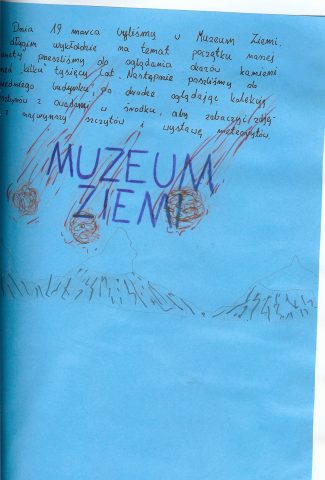 Dnia 19 marca byliśmy w Muzeum Ziemi.
długim wykładzie na temat początku naszej
przeszliśmy do oglądania okazów kamieni
kilku tysięcy lat. Następnie poszliśmy do
budynku, po drodze oglądając kolekcję
z owadami w środku, aby zobaczyć
z najwyższych szczytów i wystawę meteorytów.
MUZEUM
ZIEMI